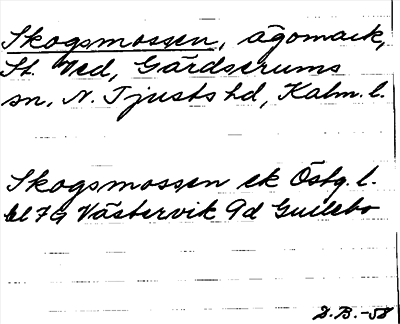 Skogsmossen, ägomark,
St. Ved, Gärdserums
sn, N. Tjusts hd, Kalm. l.
Skogsmossen ek Östg. l.
bl 7G Västervik 9d Guilebo
S.B.-58